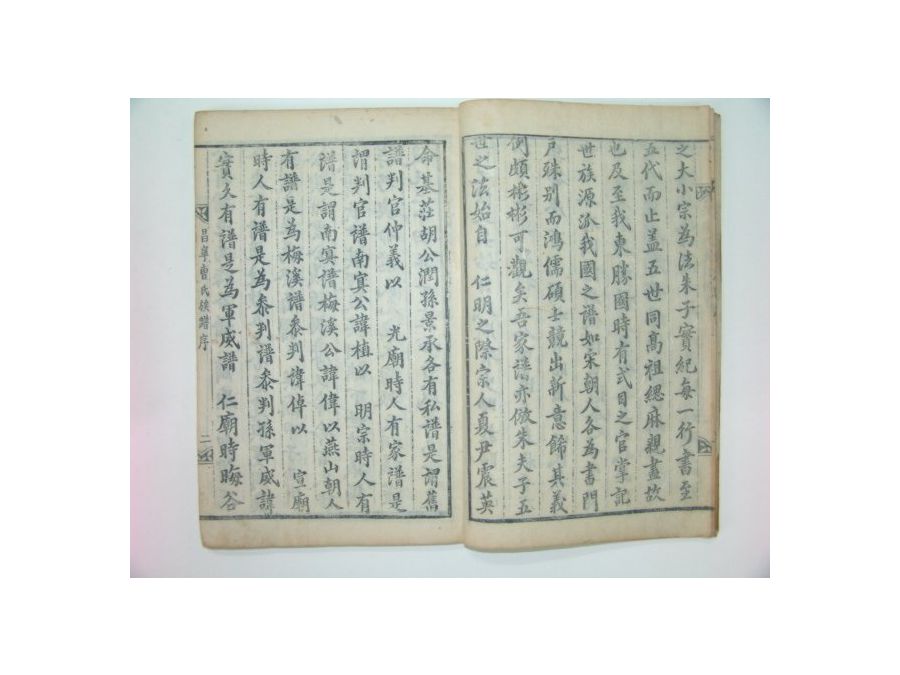 之大小宗為法朱子實紀每一行書至
五代而止盖五世同高祖緦麻親盡故
也及至我東勝國時有式目之官掌記
世族源派我國之譜如宋朝人各為書門
戶殊別而鴻儒碩士競出新意餙其義
例頗彬彬可觀矣吾家譜亦倣朱夫子五
世之法始自 仁明之際宗人夏尹震英
命基莊胡公潤孫景承各有私譜是謂舊
譜判官仲義以 光廟時人有家譜是
謂判官譜南㝠公諱植以 明宗時人有
譜是謂南㝠譜梅溪公諱偉以燕山朝人
有譜是為梅溪譜叅判諱倬以 宣廟
時人有譜是為叅判譜叅判孫軍威諱
實久有譜是為軍威譜 仁廟時晦谷
昌寧曺氏族譜序
二